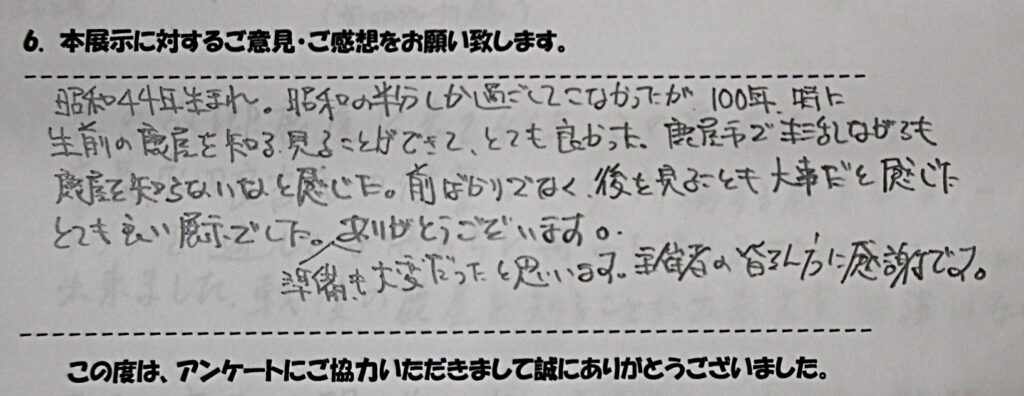 6. 本展示に対するご意見・ご感想をお願い致します。
昭和44年生まれ。昭和の半分しか過ごしてこなかったが、100年、特に
生前の鹿屋を知る、見ることができて、とても良かった。鹿屋市で生活しながらも
鹿屋を知らないなと感じた。前ばかりでなく、後を見ることも大事だと感じた
とても良い展示でした。ありがとうございます。
準備も大変だったと思います。主催者の皆さん方に感謝です。
この度は、アンケートにご協力いただきまして誠にありがとうございました。